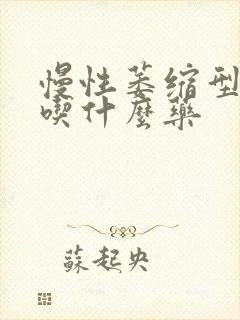 慢性萎缩型
喫什麼藥
蘇起央